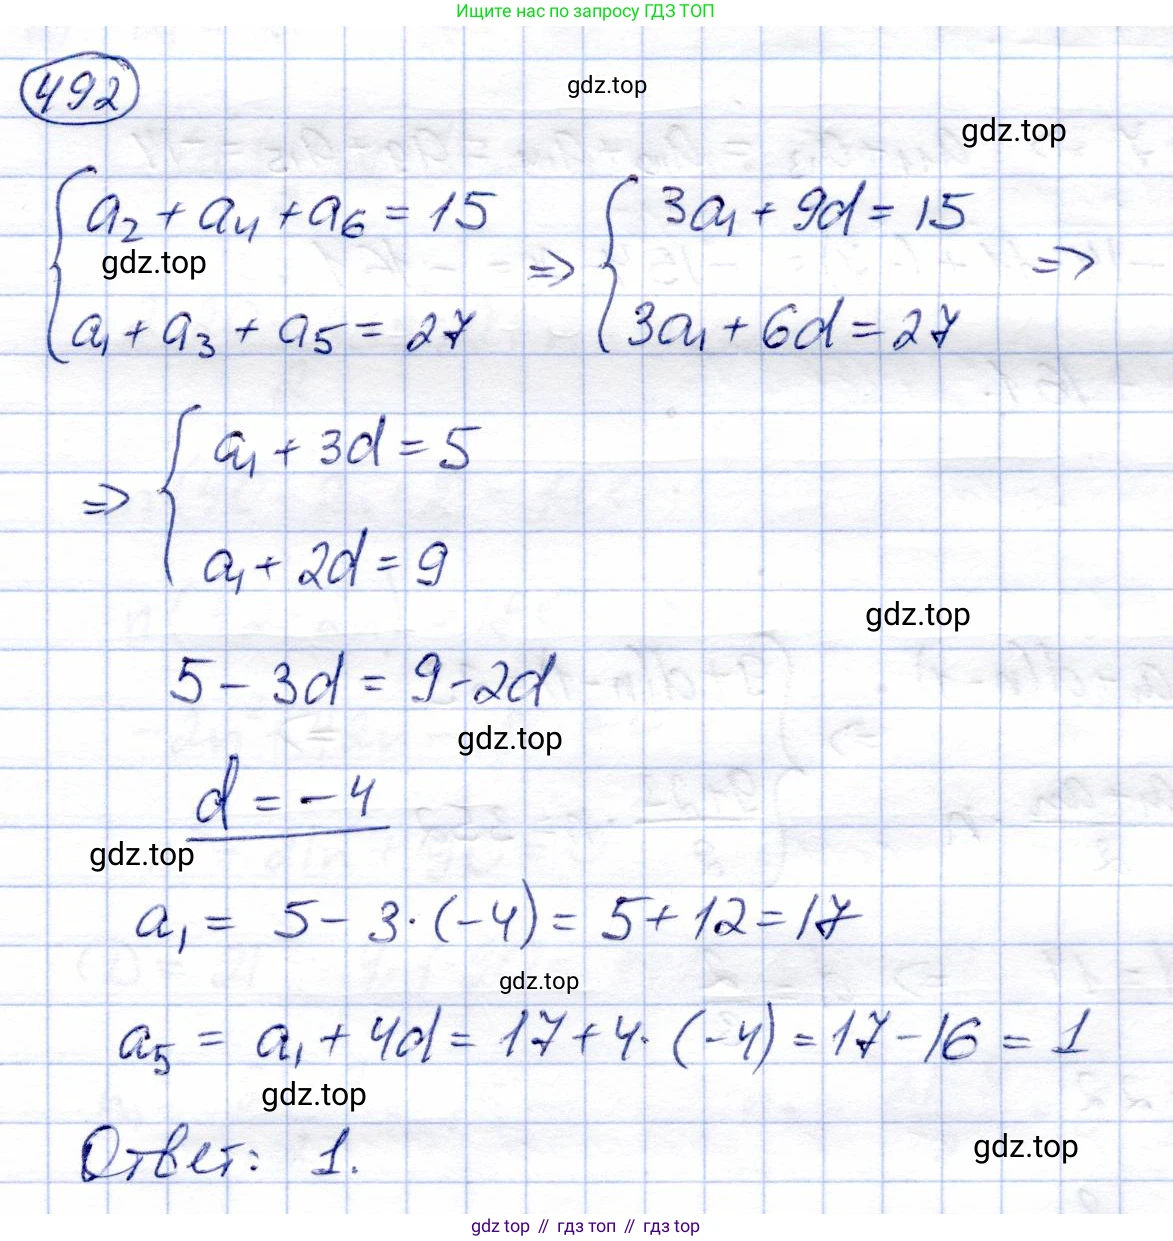 Ищите нас по запросу ГДЗ ТОП
492
gdz.top
gdz.top
a₂ + a₄ + a₆ = 15 ⇒ 3a₁ + 9d = 15 ⇒
gdz.top
a₁ + a₃ + a₅ = 27 3a₁ + 6d = 27
⇒ a₁ + 3d = 5
a₁ + 2d = 9
gdz.top
5 - 3d = 9 - 2d
gdz.top
d = -4
gdz.top
a₁ = 5 - 3·(-4) = 5 + 12 = 17
gdz.top
a₅ = a₁ + 4d = 17 + 4·(-4) = 17 - 16 = 1
gdz.top
Ответ: 1.
gdz.top
gdz top // гдз топ // гдз top